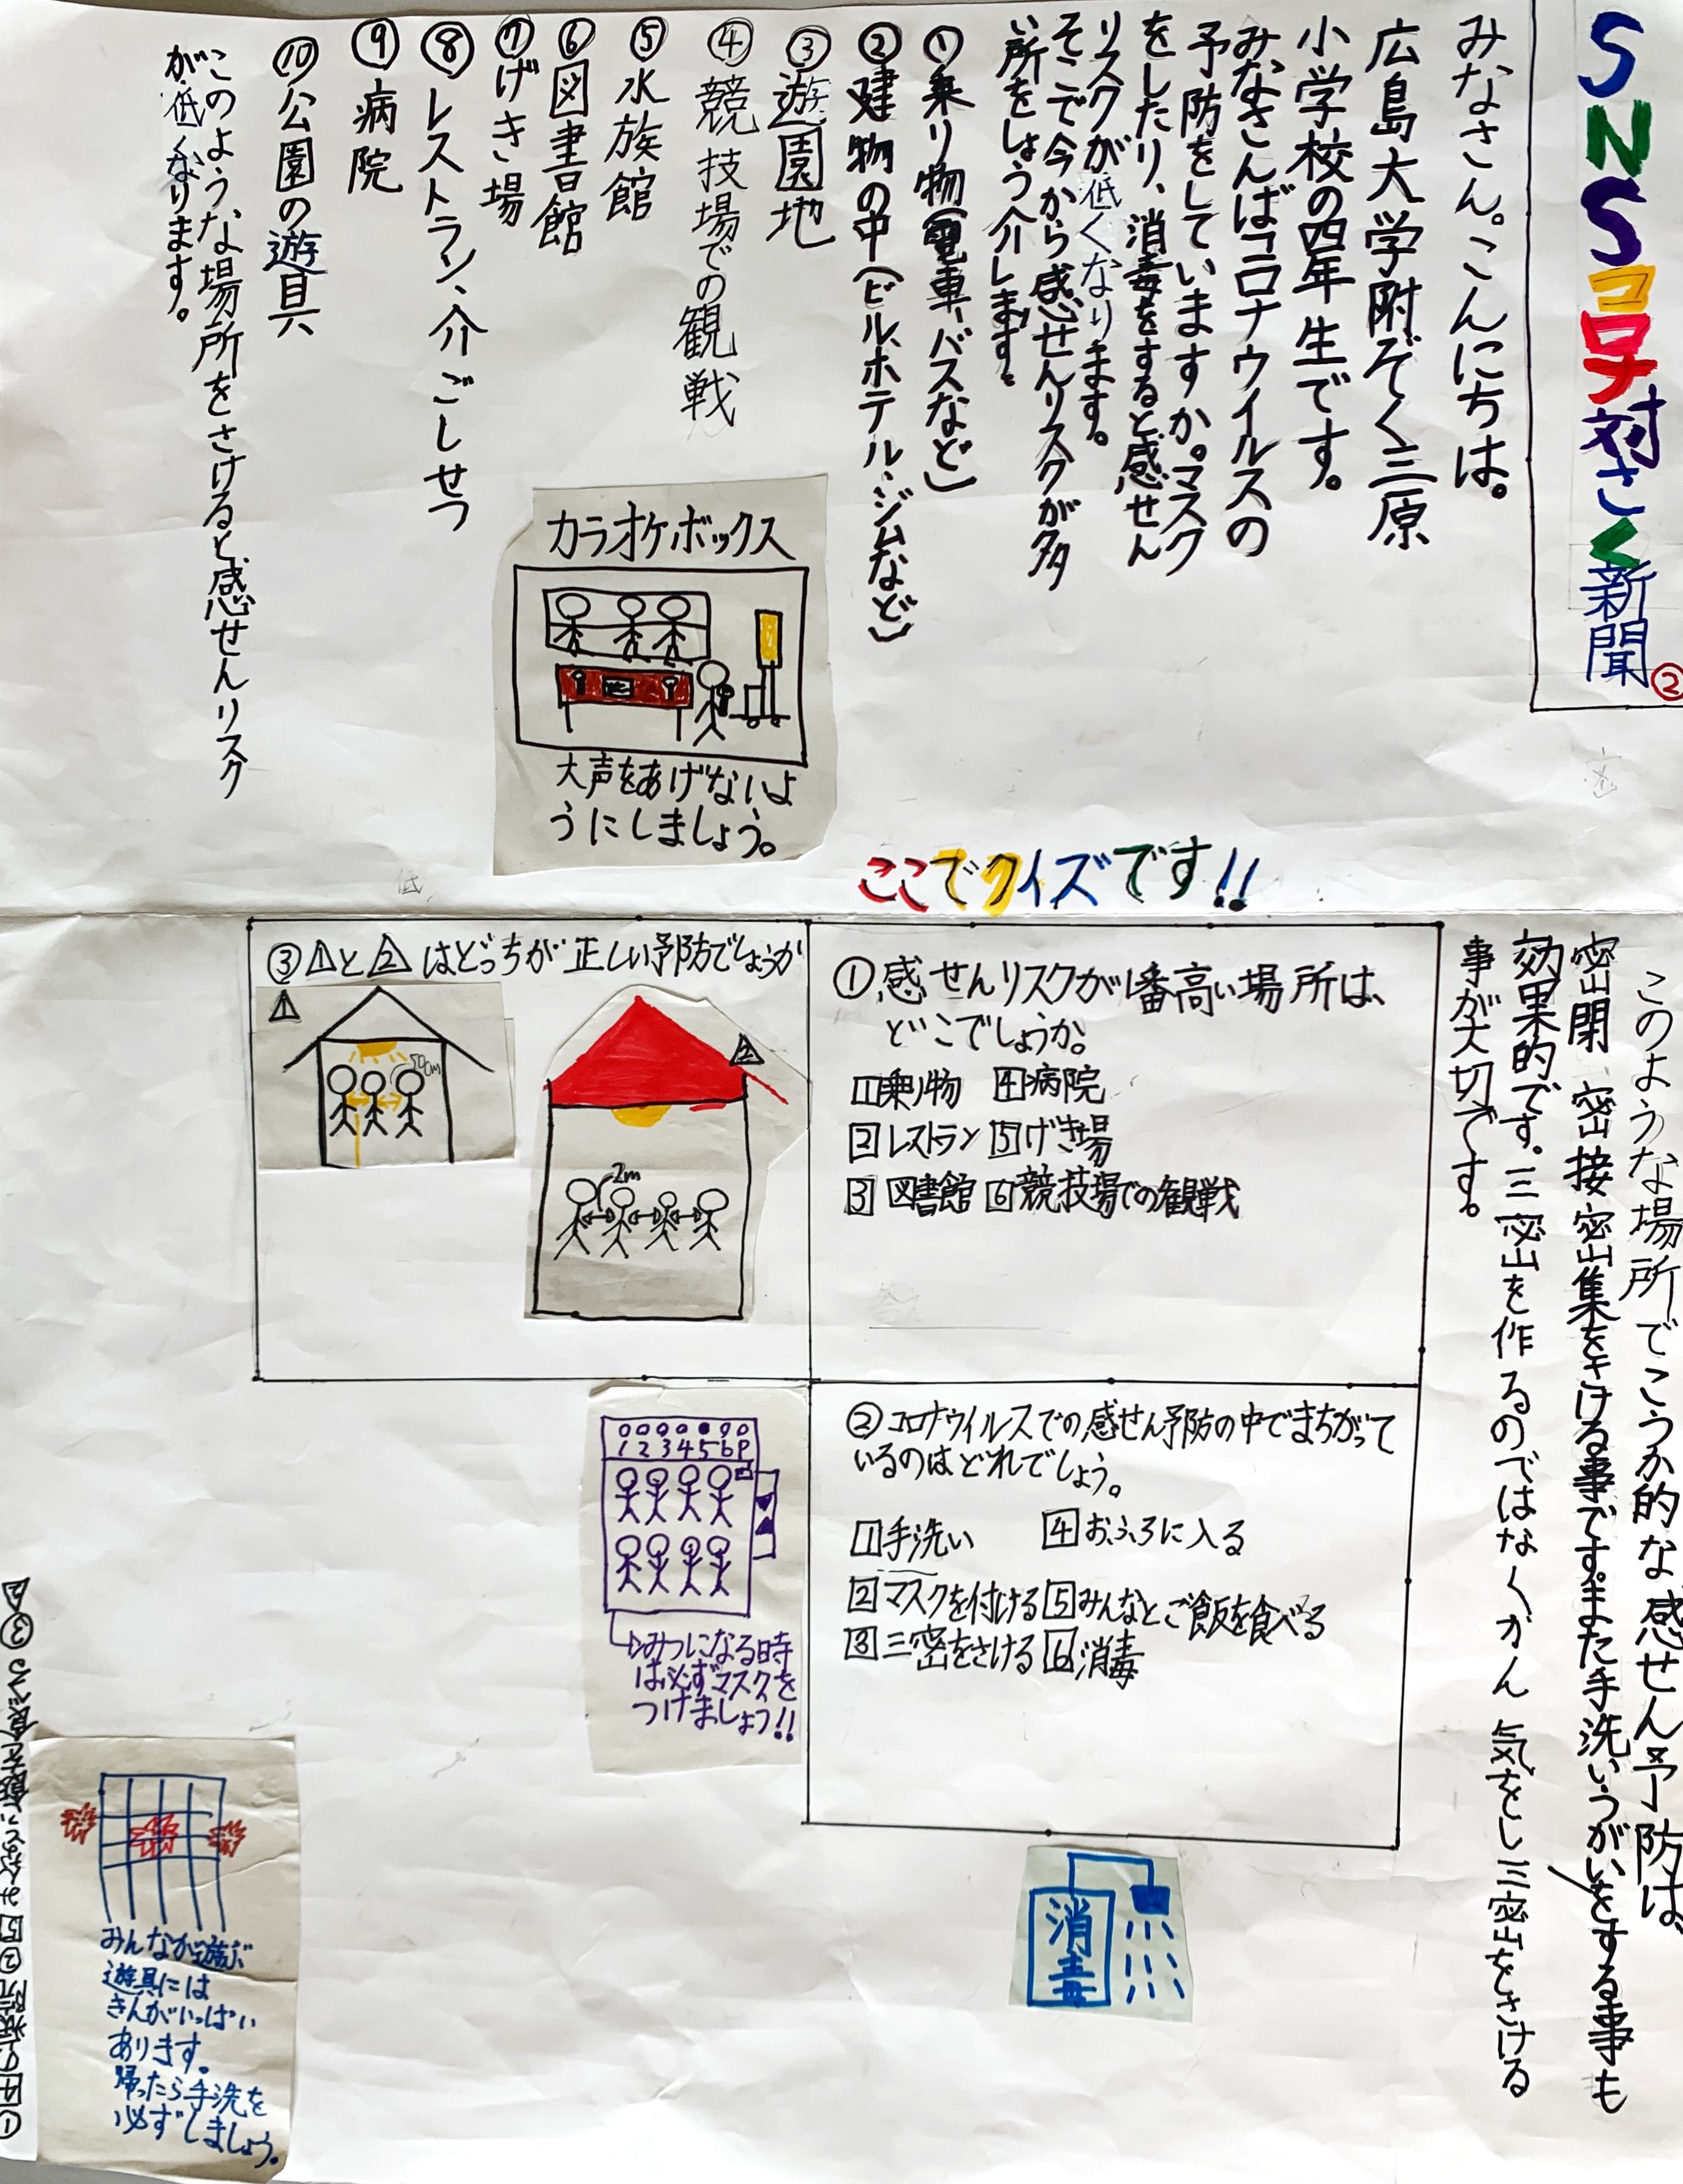 SNSコロナ対さく新聞②
みなさん。こんにちは。
広島大学附ぞく三原
小学校の四年生です。
みなさんはコロナウイルスの
予防をしていますか。マスク
をしたり、消毒をすると感せん
リスクが低くなります。
そこで今から感せんリスクが多
い所をしょう介します。
①乗り物(電車、バスなど)
②建物の中(ビル、ホテル・ジムなど)
③遊園地
④競技場での観戦
⑤水族館
⑥図書館
⑦げき場
⑧レストラン、介ごしせつ
⑨病院
⑩公園の遊具
このような場所をさけると感せんリスク
が低くなります。
カラオケボックス
大声をあげないよ
うにしましょう。
このような場所でこうか的な感せん予防は、
密閉 密接 密集をさける事です。また手洗いうがいをする事も
効果的です。三密を作るのではなくかん気をし三密をさける
事が大切です。
ここでクイズです!!
①感せんリスクが1番高い場所は、
どこでしょうか。
1乗り物 4病院
2レストラン 5げき場
3図書館 6競技場での観戦
②コロナウイルスでの感せん予防の中でまちがって
いるのはどれでしょう。
1手洗い 4おふろに入る
2マスクを付ける 5みんなとご飯を食べる
3三密をさける 6消毒
③1と2はどっちが正しい予防でしょうか
1
50cm
2
2m
1 2 3 4 5 6 P
みつになる時
は必ずマスクを
つけましょう!!
消毒
みんなが遊ぶ
遊具には
きんがいっぱい
あります。
帰ったら手洗を
必ずしましょう。
①4の病院 ②5みんなとご飯を食べる ③2